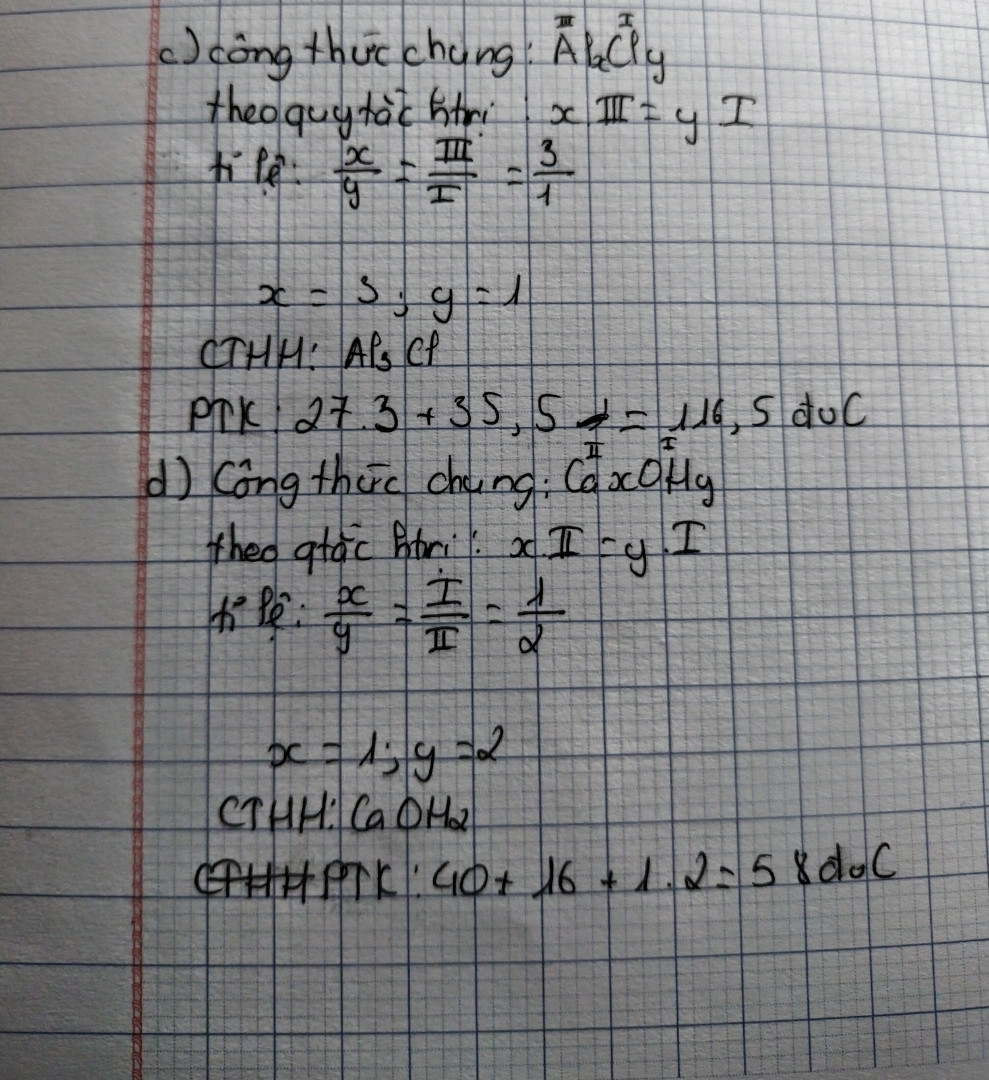 c) công thức chung: AlxCly
III I
theo quy tắc htrị: x III = y I
tỉ lệ: x/y = III/I = 3/1
x = 3; y = 1
CTHH: Al3 Cl
PTK: 27.3 + 35,5 . 1 = 116,5 đvC
II I
d) Công thức chung: CaxOHy
theo qtắc htrị: x.II = y.I
tỉ lệ: x/y = I/II = 1/2
x = 1; y = 2
CTHH: CaOH2
CTHH PTK: 40 + 16 + 1.2 = 58 đvC